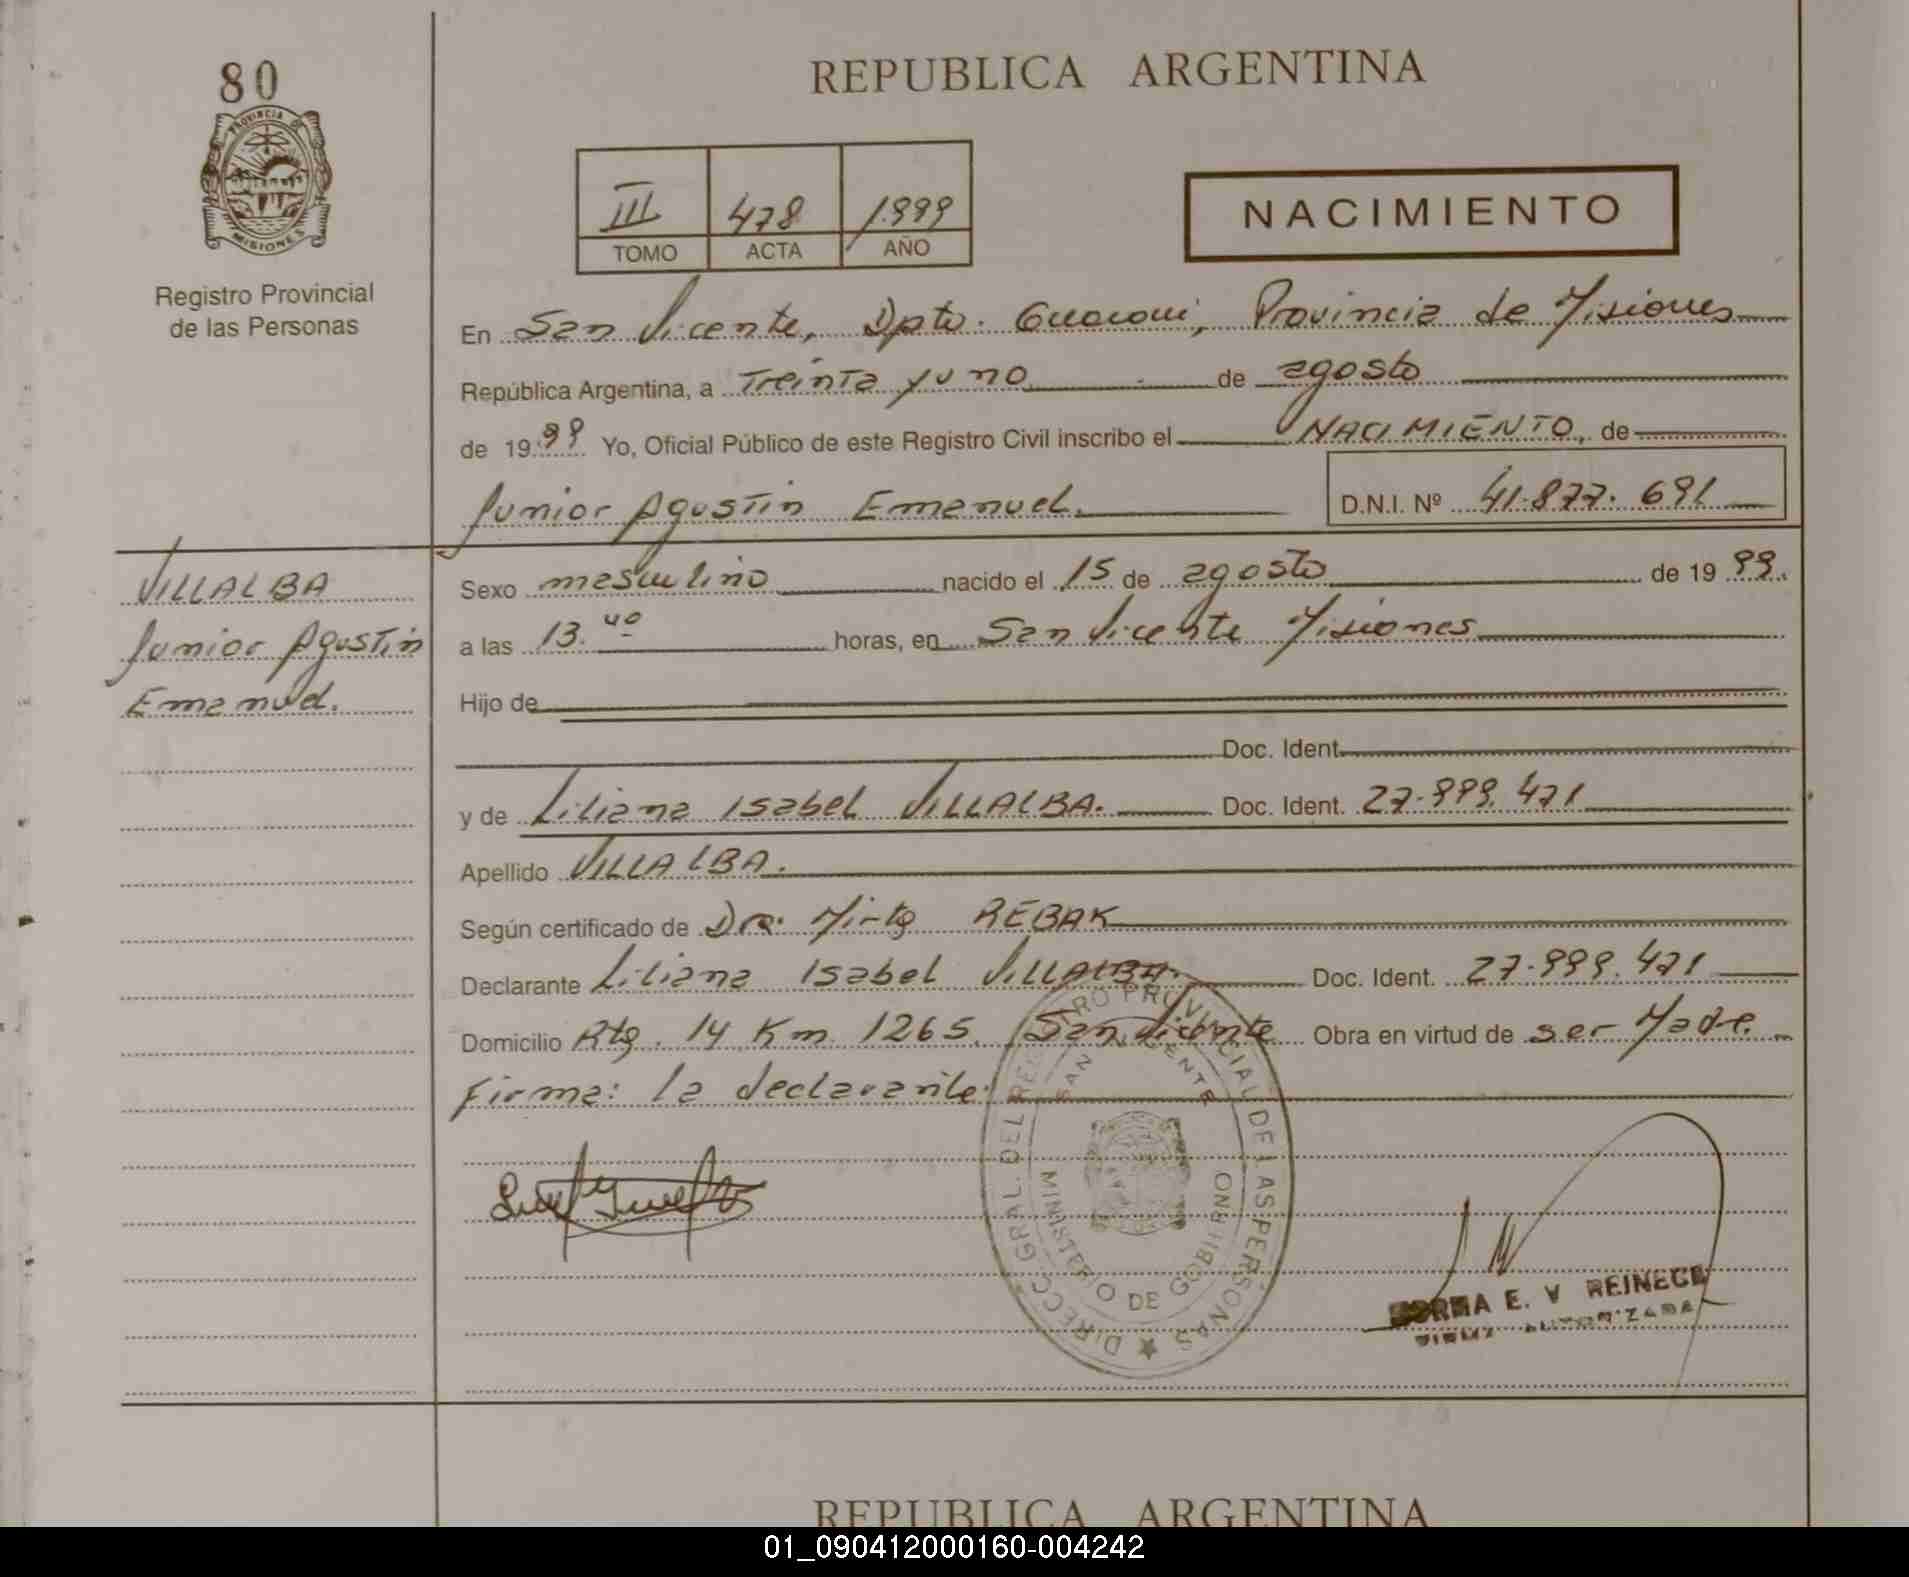 80
REPUBLICA ARGENTINA
PROVINCIA DE
MISIONES
Registro Provincial
de las Personas
III 478 1999
TOMO ACTA AÑO
NACIMIENTO
En San Vicente, Dpto. Guarani, Provincia de Misiones
República Argentina, a Treinta y uno de agosto
de 1999 Yo, Oficial Público de este Registro Civil inscribo el NACIMIENTO, de
Junior Agustin Emanuel. D.N.I. Nº 41.877.691
VILLALBA
Junior Agustin
Emanuel.
Sexo masculino nacido el 15 de agosto de 1999.
a las 13.40 horas, en San Vicente Misiones
Hijo de
Doc. Ident.
y de Liliana Isabel VILLALBA. Doc. Ident. 27.999.471
Apellido VILLALBA.
Según certificado de Dra. Mirta REBAK
Declarante Liliana Isabel VILLALBA. Doc. Ident. 27.999.471
Domicilio Rta. 14 Km 1265. San Vicente Obra en virtud de ser Madre.
Firma: la declarante.
DIRECC. GRAL. DEL REGISTRO PROVINCIAL DE LAS PERSONAS
SAN VICENTE
MINISTERIO DE GOBIERNO
NORMA E. V REINECK
FIRMA AUTORIZADA
REPUBLICA ARGENTINA
01_090412000160-004242